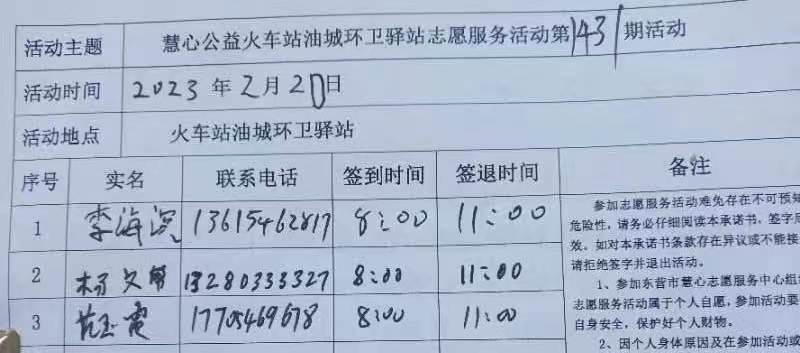 活动主题 慧心公益火车站油城环卫驿站志愿服务活动第1431期活动
活动时间 2023年2月20日
活动地点 火车站油城环卫驿站
序号 实名 联系电话 签到时间 签退时间 备注
1 李海滨 13615462817 8:00 11:00
2 杨文 13280333327 8:00 11:00
3 范玉霞 17705469678 8:00 11:00
参加志愿服务活动难免存在不可预知
危险性,请务必仔细阅读本承诺书,签字后
效。如对本承诺书条款存在异议或不能接
请拒绝签字并退出活动。
1、参加东营市慧心志愿服务中心组
志愿服务活动属于个人自愿,参加活动要
自身安全,保护好个人财物。
2、因个人身体原因及在参加活动或